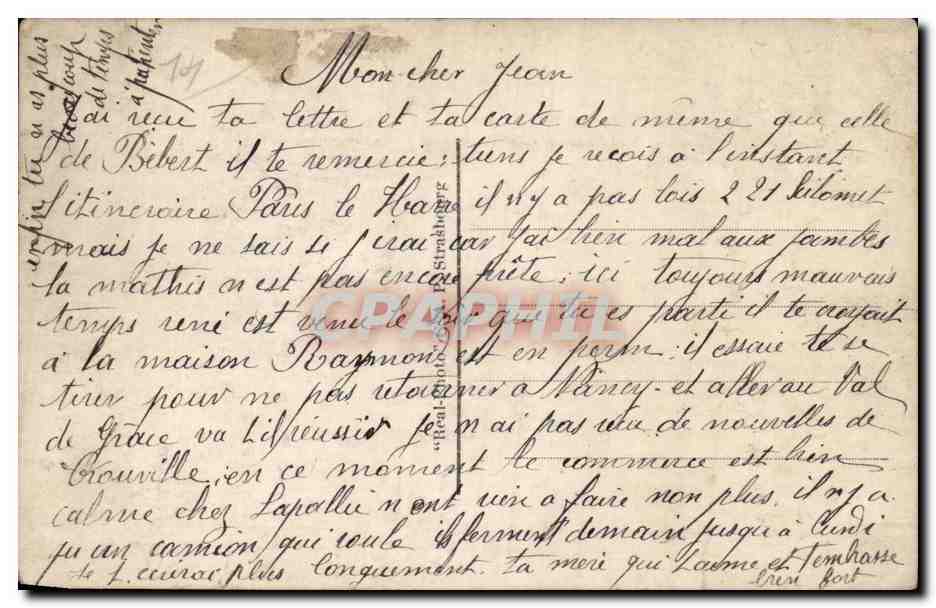 Mon cher Jean
jai recu ta lettre et ta carte de même que celle
de Bébert il te remercie; tiens je recois a l'instant
l'itineraire Paris le Havre il ny a pas lois 221 kilomet
mais je ne sais si j irai car jai bien mal aux jambes
la mathis n est pas encore prête; ici toujours mauvais
temps rené est venu le soir que tu es parti il te croyait
à la maison Raymon est en perm; il essaie te se
tirer pour ne pas retourner a Nancy et aller au Val
de Grâce va til réussir je n ai pas recu de nouvelles de
Trouville, en ce moment le commerce est bien
calme chez Lapallu n ont rien a faire non plus, il ny a
qu un camion qui roule ils ferment demain jusqu a lundi
je t ecirai plus longuement. ta meri qui t aime et t embrasse
bien fort
enfin tu n as plus
beaucoup
de temps
a
14
"Real-Photo" Strasbourg
CPAPHIL